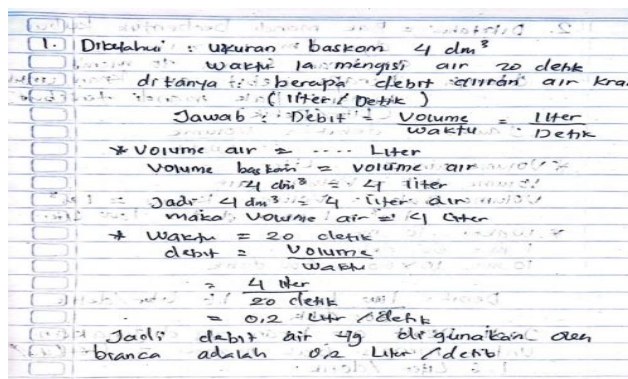 1. Diketahui : ukuran baskom 4 dm³
waktu la mengisi air 20 detik
ditanya : berapa debit aliran air kran
(liter / Detik)
Jawab : Debit = Volume / waktu = Liter / Detik
* Volume air = .... Liter
Volume baskom = volume air
4 dm³ = 4 liter
Jadi 4 dm³ = 4 liter air
maka volume air = 4 liter
* Waktu = 20 detik
debit = Volume / waktu
= 4 liter / 20 detik
= 0,2 liter / detik
Jadi debit air yg digunakan oleh
branca adalah 0,2 Liter / detik